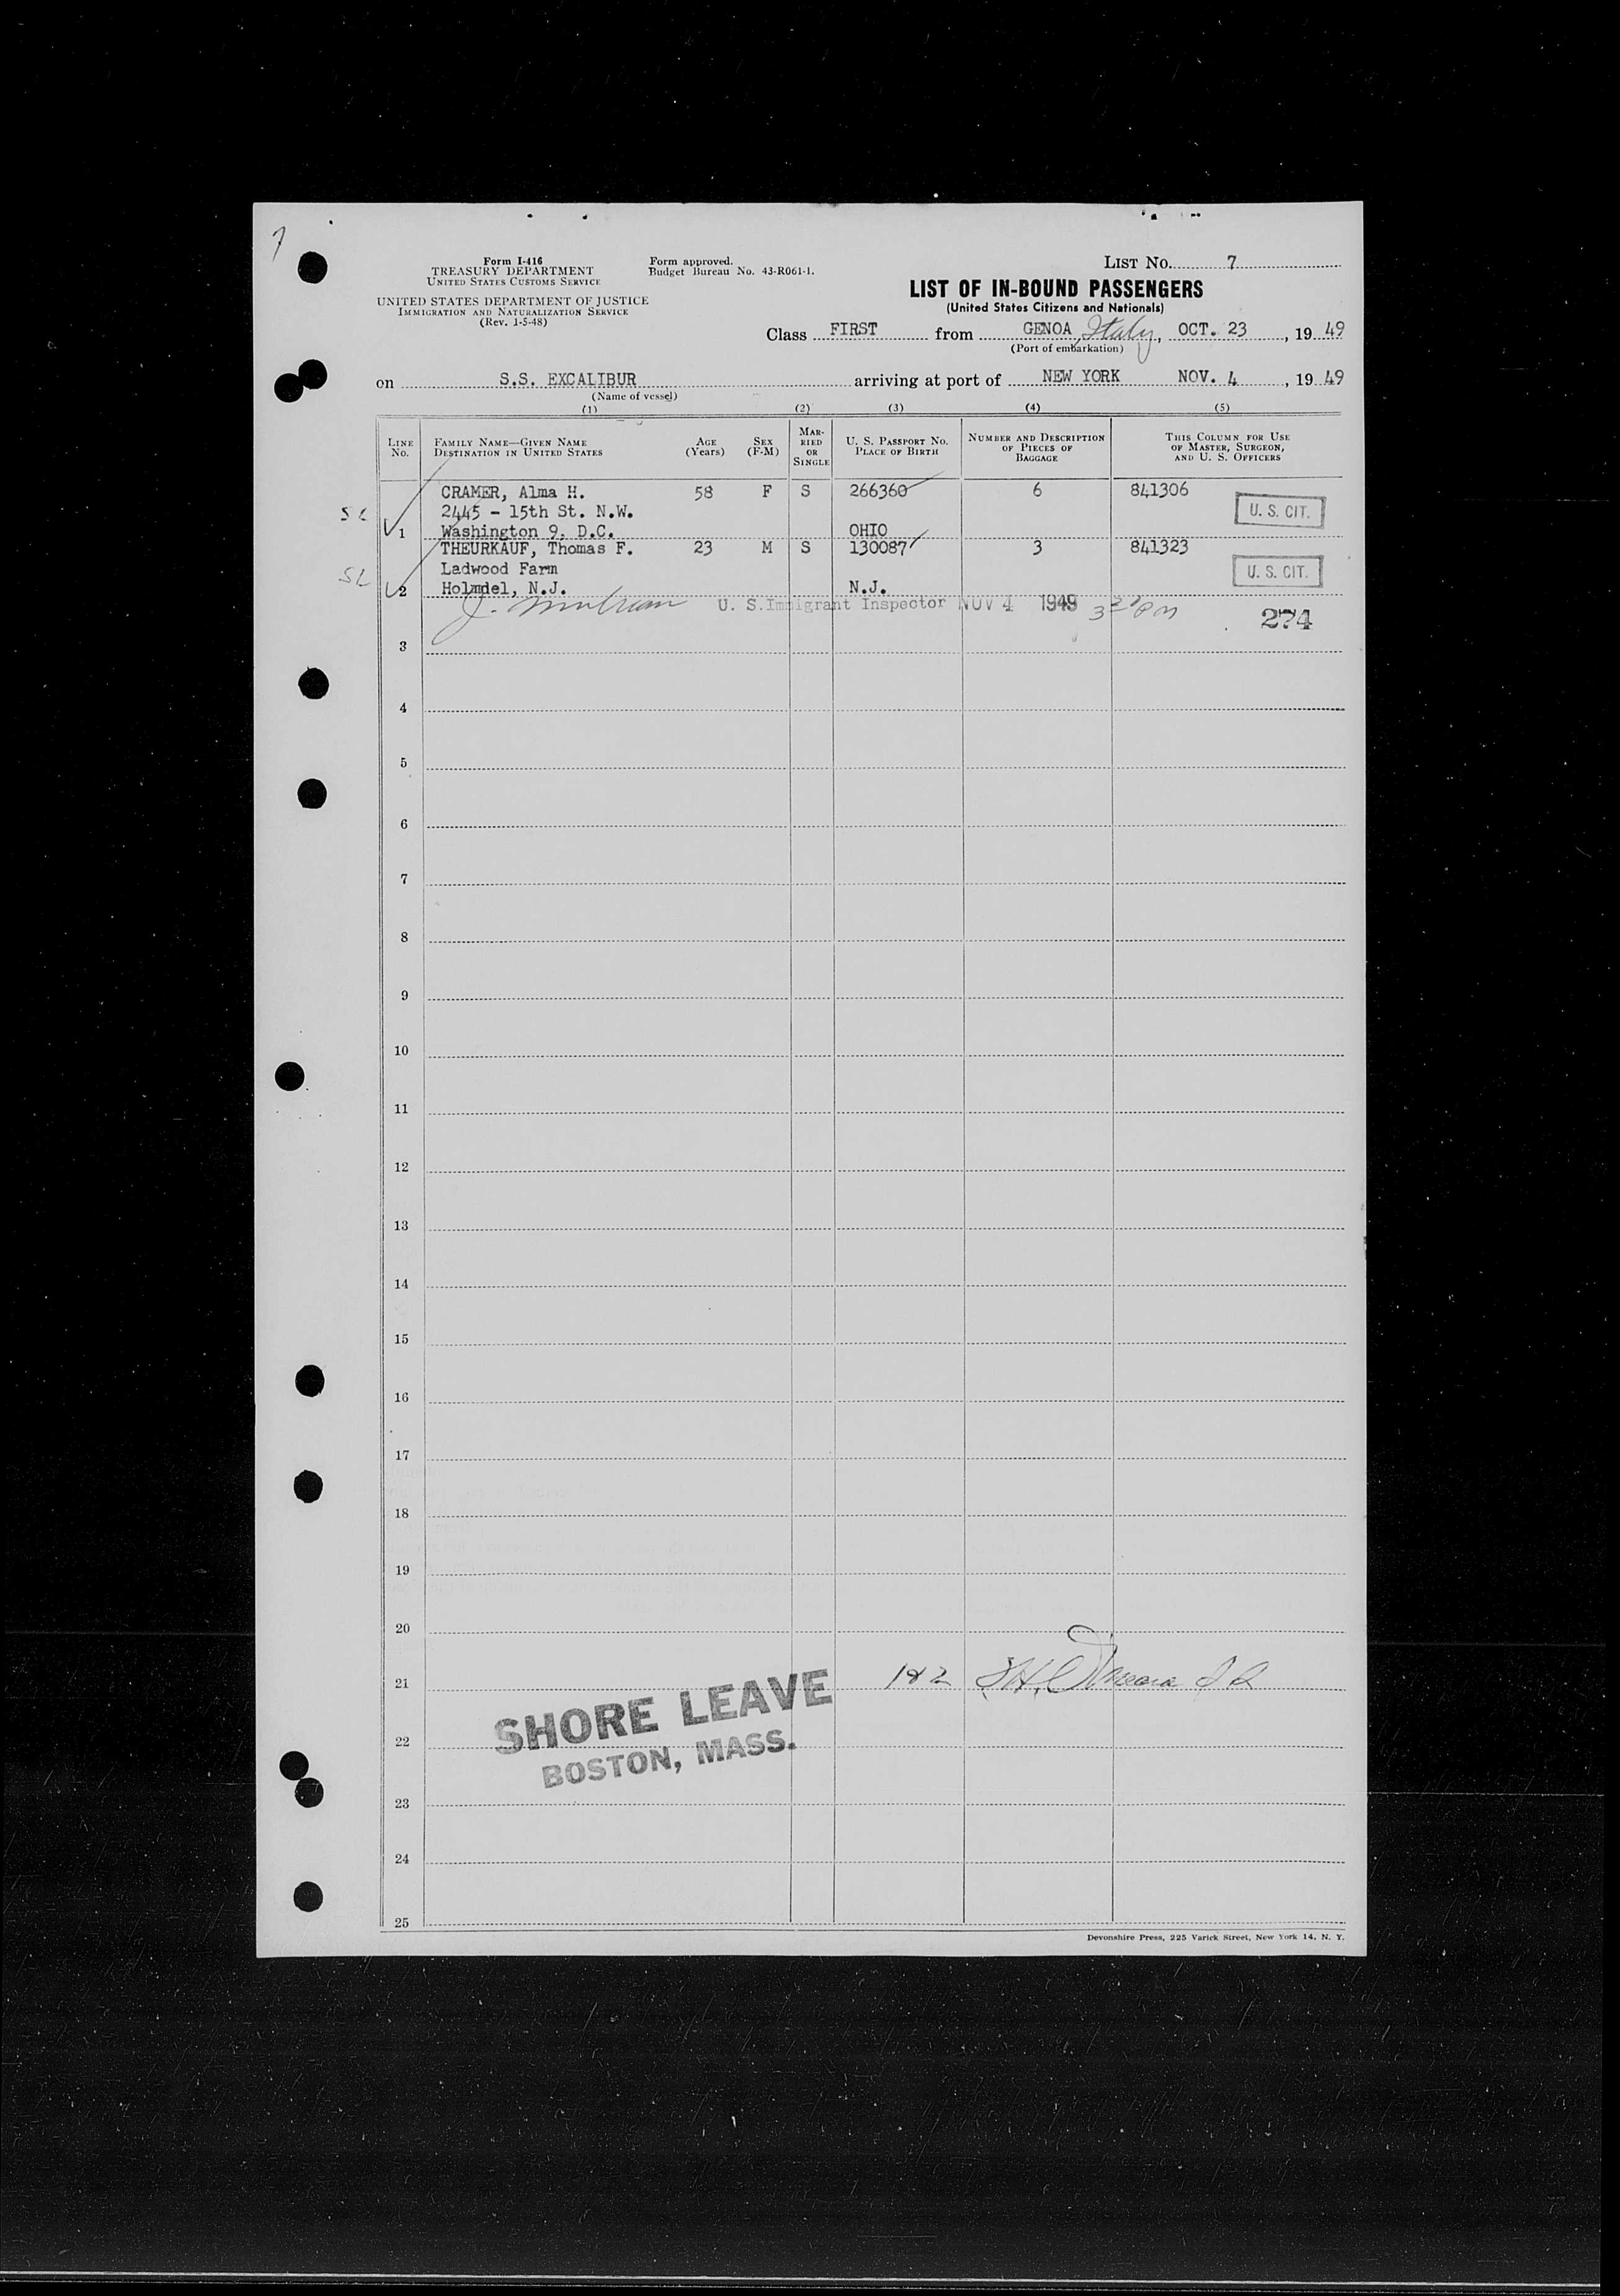 7
Form I-416
TREASURY DEPARTMENT
UNITED STATES CUSTOMS SERVICE
UNITED STATES DEPARTMENT OF JUSTICE
IMMIGRATION AND NATURALIZATION SERVICE
(Rev. 1-5-48)
Form approved.
Budget Bureau No. 43-R061-1.
LIST NO. 7
LIST OF IN-BOUND PASSENGERS
(United States Citizens and Nationals)
Class FIRST from GENOA, Italy, OCT. 23, 19 49
(Port of embarkation)
on S.S. EXCALIBUR arriving at port of NEW YORK NOV. 4, 19 49
(Name of vessel)
(1) (2) (3) (4) (5)
LINE NO. FAMILY NAME—GIVEN NAME DESTINATION IN UNITED STATES AGE (Years) SEX (F-M) MARRIED OR SINGLE U. S. PASSPORT NO. PLACE OF BIRTH NUMBER AND DESCRIPTION OF PIECES OF BAGGAGE THIS COLUMN FOR USE OF MASTER, SURGEON, AND U. S. OFFICERS
CRAMER, Alma H. 58 F S 266360 6 841306
SL 2445 - 15th St. N.W. U. S. CIT.
1 Washington 9, D.C. OHIO
THEURKAUF, Thomas F. 23 M S 130087 3 841323
SL Ladwood Farm U. S. CIT.
2 Holmdel, N.J. N.J.
U. S. Immigrant Inspector NOV 4 1949
274
3
4
5
6
7
8
9
10
11
12
13
14
15
16
17
18
19
20
21 182
SHORE LEAVE
22
BOSTON, MASS.
23
24
25
Devonshire Press, 225 Varick Street, New York 14, N. Y.